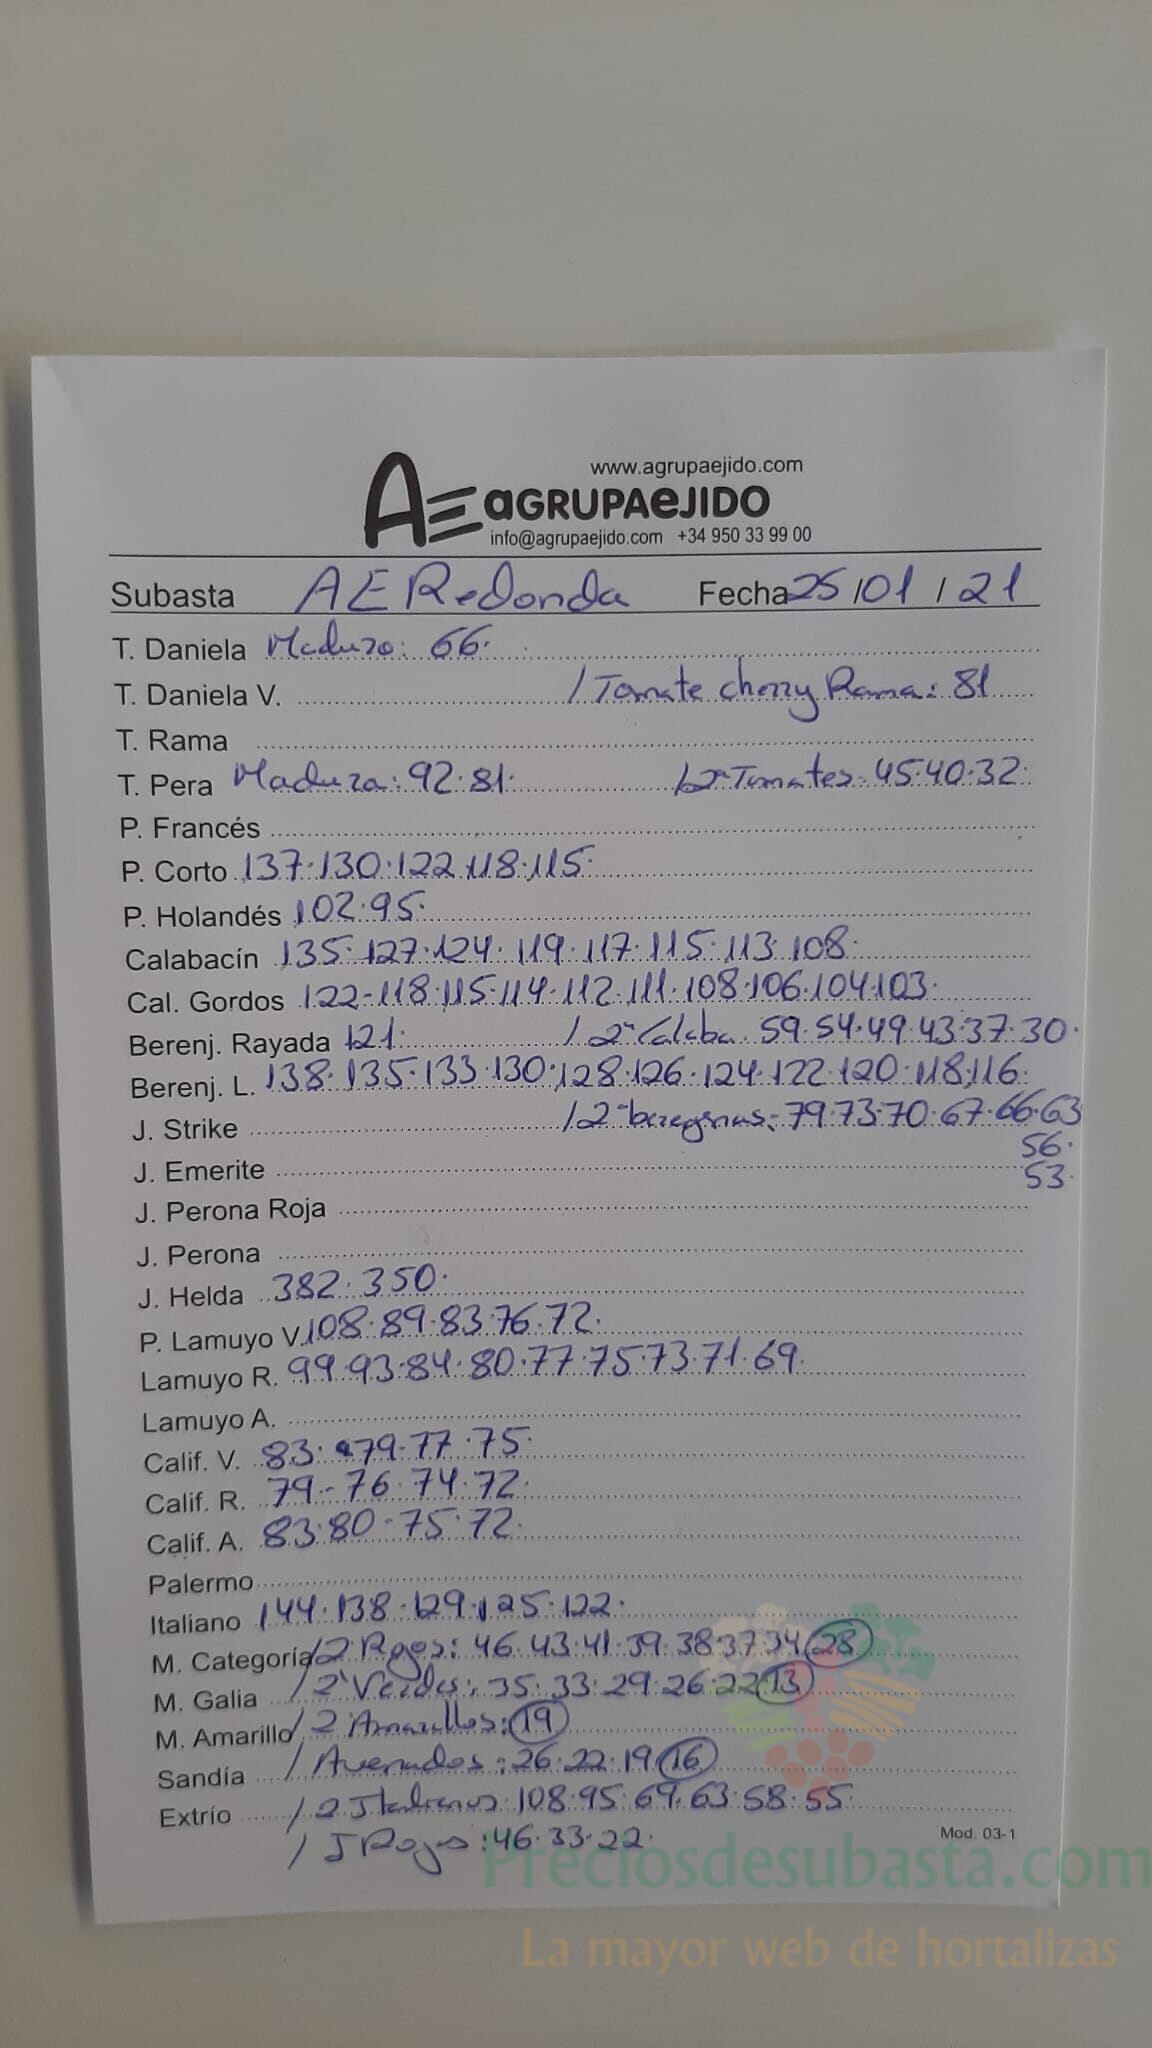 www.agrupaejido.com
AE aGRUPAeJIDO
info@agrupaejido.com +34 950 33 99 00
Subasta AE Redonda Fecha 25/01/21
T. Daniela Maduro: 66.
T. Daniela V. / Tomate cherry Rama: 81
T. Rama
T. Pera Madura: 92.81. / 2ª Tomates: 45.40.32.
P. Francés
P. Corto 137.130.122.118.115.
P. Holandés 102.95.
Calabacín 135.127.124.119.117.115.113.108.
Cal. Gordos 122-118.115.114.112.111.108.106.104.103.
Berenj. Rayada 121. / 2ª Calaba. 59.54.49.43.37.30.
Berenj. L. 138.135.133.130.128.126.124.122.120.118.116.
J. Strike / 2ª beregenas: 79.73.70.67.66.63
56.
J. Emerite
53.
J. Perona Roja
J. Perona
J. Helda 382.350.
P. Lamuyo V. 108.89.83.76.72.
Lamuyo R. 99.93.84.80.77.75.73.71.69.
Lamuyo A.
Calif. V. 83.79.77.75.
Calif. R. 79.-76.74.72.
Calif. A. 83.80-75.72.
Palermo
Italiano 144.138.129.125.122.
M. Categoría / 2 Rojos: 46.43.41.39.38.37.34.28
M. Galia / 2ª Verdes: 35.33.29.26.22.13
M. Amarillo / 2 Amarillos: 19
Sandía / Averiados: 26.22.19.16
Extrío / 2 Italianos: 108.95.69.63.58.55.
/ I Rojos: 46.33.22.
Mod. 03-1
Preciosdesubasta.com
La mayor web de hortalizas